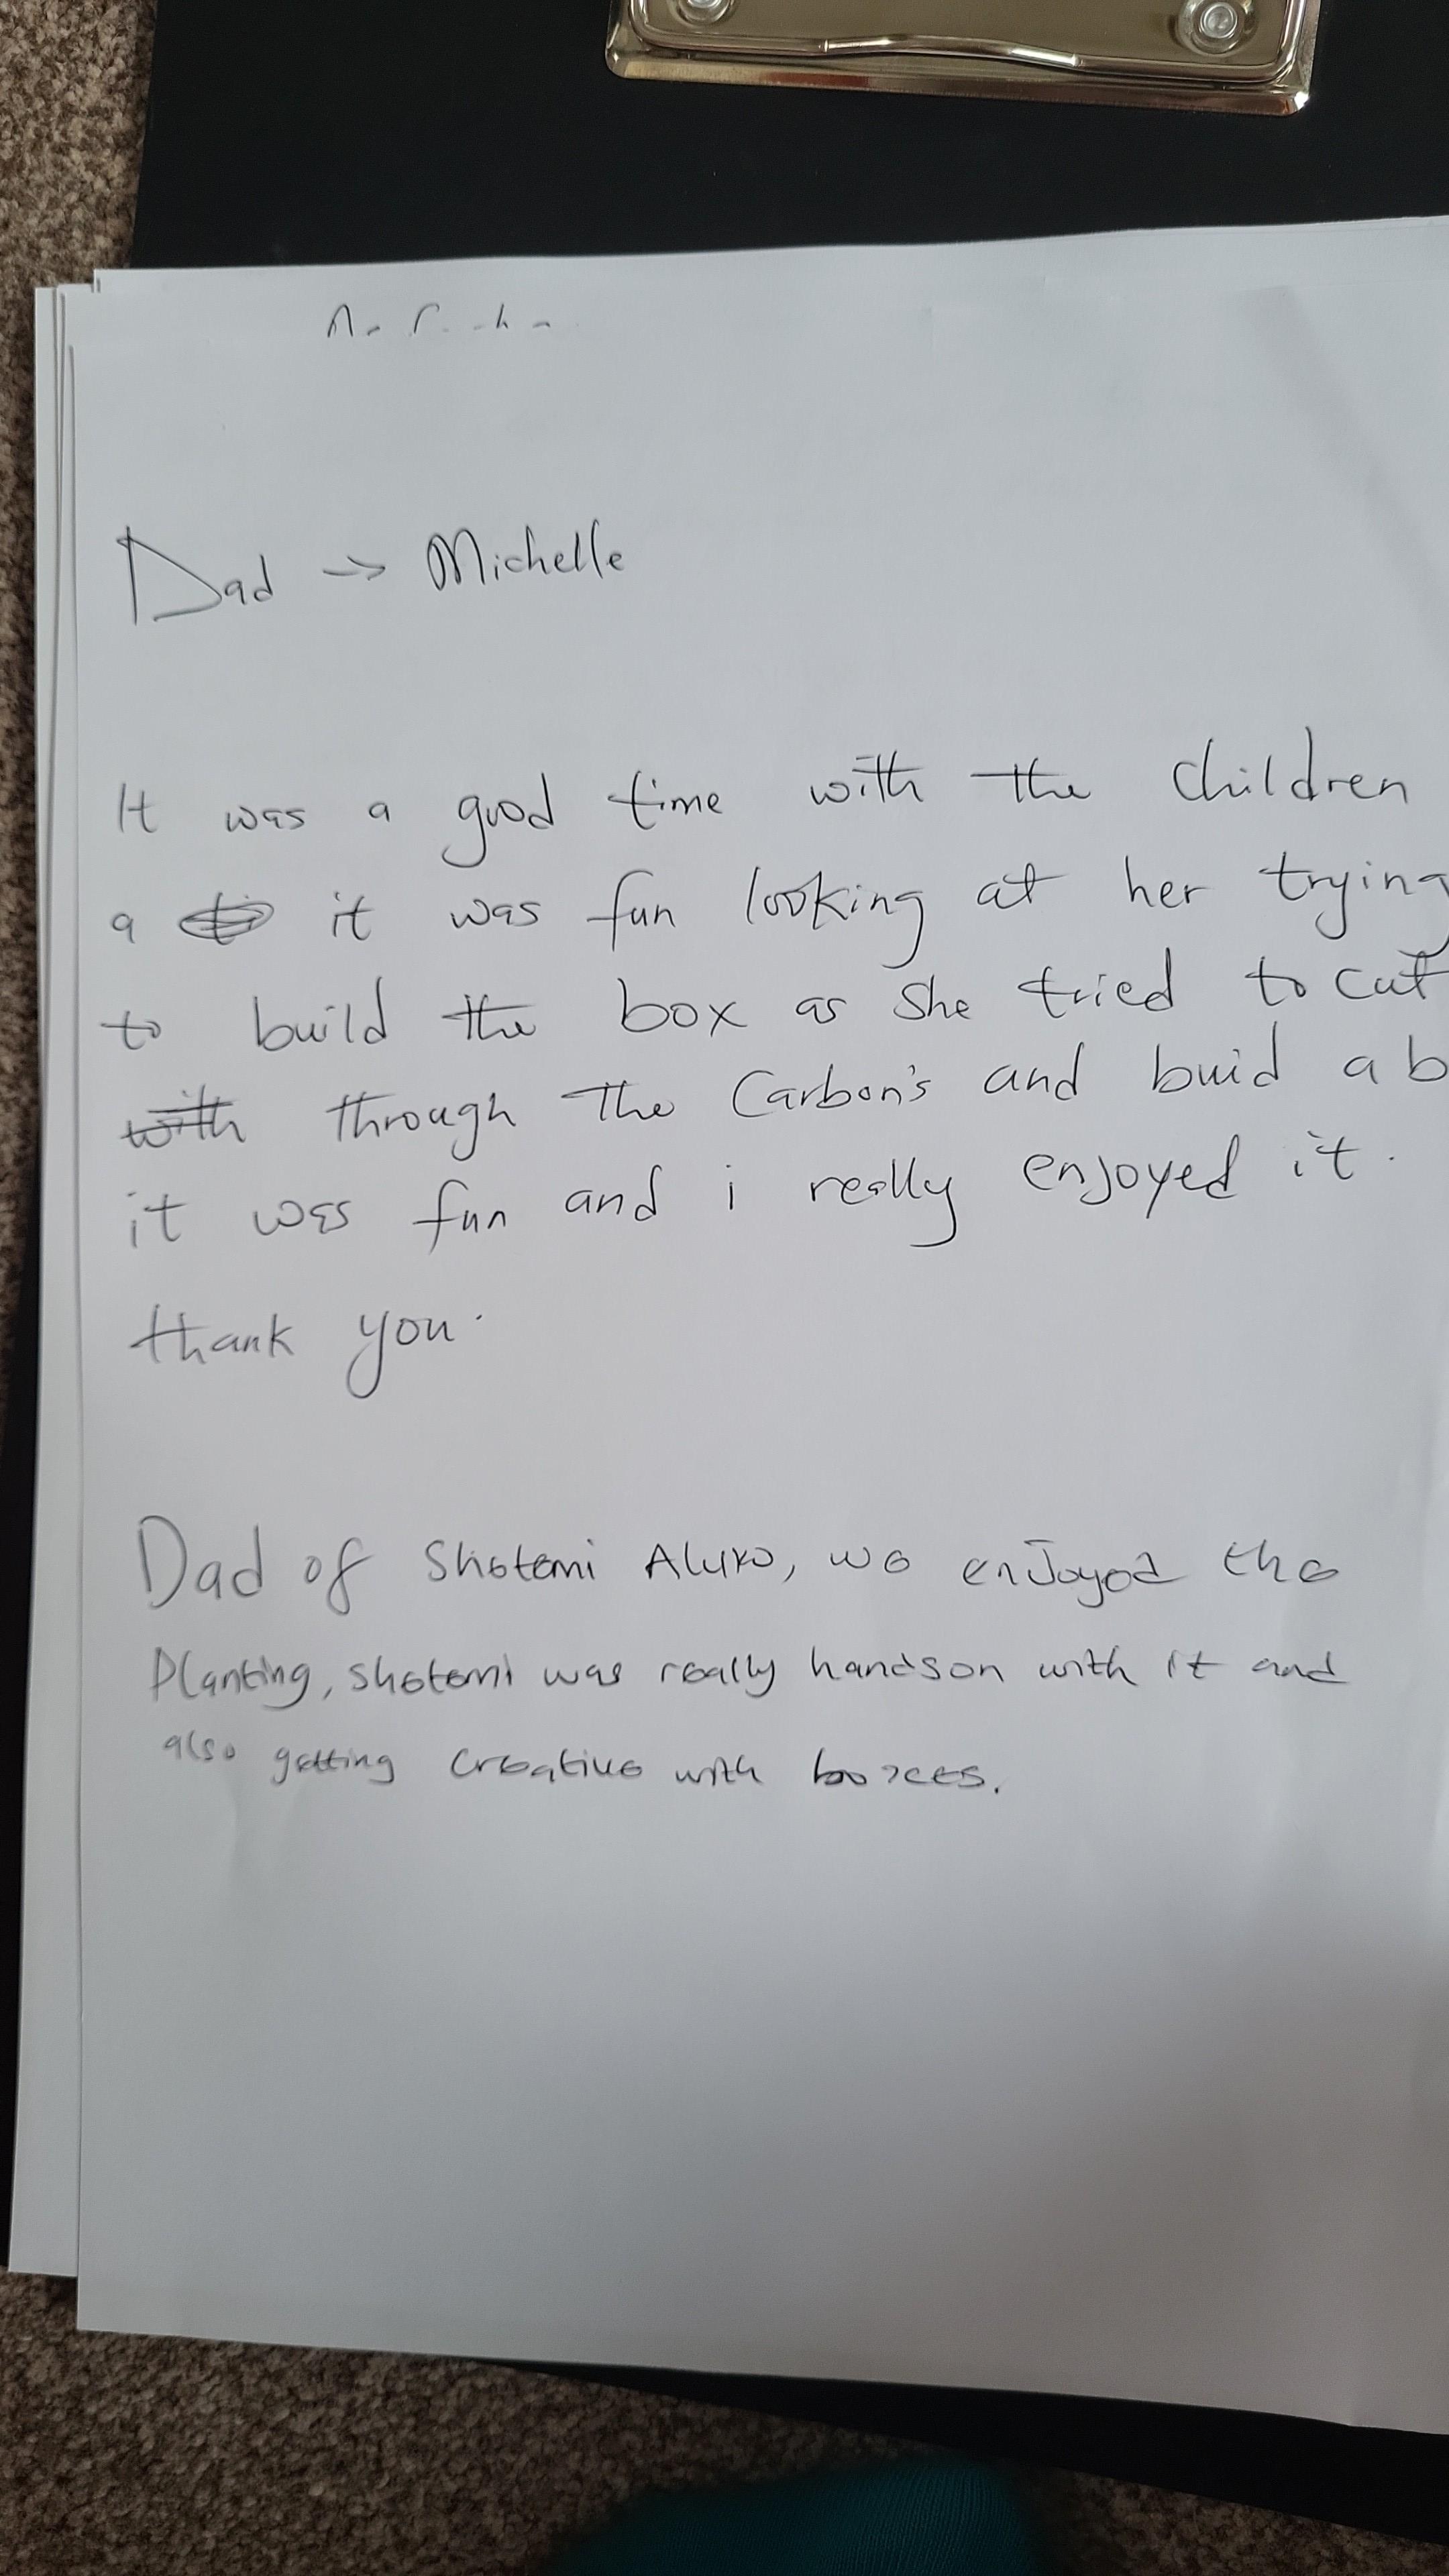 Dad -> Michelle
It was a good time with the children
a it was fun looking at her trying
to build the box as she tried to cut
with through the Carbon's and buid a b
it was fun and i really enjoyed it.
thank you.
Dad of Shotemi Aluko, we enjoyed the
Planting, Shotemi was really handson with it and
also getting creative with boxes.